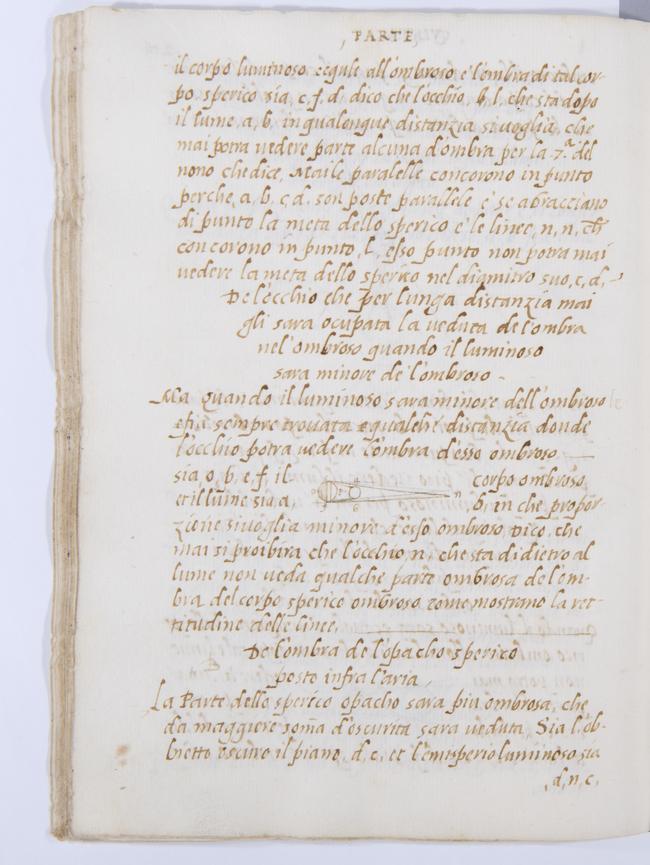 PARTE
il corpo luminoso eqgule all'ombroso e l'ombra di tal cor-
po sperico sia, c, f, d, dico che l'occhio, l, che sta dopo
il lume, a, b, in qualonque distanzia si uoglia, che
mai potra uedere parte alcuna d'ombra per la 7.ª del
nono che dice, Mai le paralelle concorono in punto
perche, a, b, c, d, son poste parallele e se abracciano
di punto la meta dello sperico e le linee, n, n, ch̄
concorono in punto, l, esso punto non potra mai
uedere la meta dello sperico nel diamitro suo, c, d,
De l'occhio che per lunga distanzia mai
gli sara ocupata la ueduta de l'ombra
nel'ombroso quando il luminoso
sara minore de l'ombroso -
Ma quando il luminoso sara minore dell'ombroso
e fia sempre trouata qualche distanzia donde
l'occhio potra uedere l'ombra d'esso ombroso
sia, o, b, e, f, il corpo ombroso,
et il lume sia, a, b, in che propor-
zione si uoglia minore d'esso ombroso, Dico, che
mai si proibira che l'occhio, n, che sta di dietro al
lume non ueda qualche parte ombrosa de l'om-
bra del corpo sperico ombroso come mostrano la ret-
titudine delle linee,
De l'ombra de l'opacho sperico
posto infra l'aria,
La Parte dello sperico opacho sara piu ombrosa, che
da maggiore som̄a d'oscurita sara ueduta, Sia l'ob-
bietto oscuro il piano, d, c, et l'emisperio luminoso sia
, d, n, c,